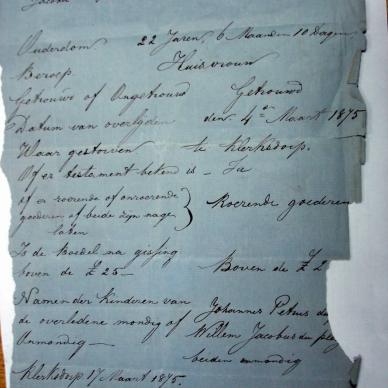 Jacoba
Ouderdom 22 Jaren 6 Maanden 10 Dagen
Beroep Huisvrouw
Getrouwd of Ongetrouwd Getrouwd
Datum van overlyden den 4de Maart 1875
Waar gestorven te Klerksdorp.
Of er testament bekend is - Ja
of er roerende of onroerende
goederen of beide zijn nage
laten } Roerende goederen
Is de Boedel na gissing
boven de £25 - Boven de £2
Namen der Kinderen van Johannes Petrus du
de overledene mondig of Willem Jacobus du ples
Onmondig - beiden onmondig
Klerksdorp 17 Maart 1875.